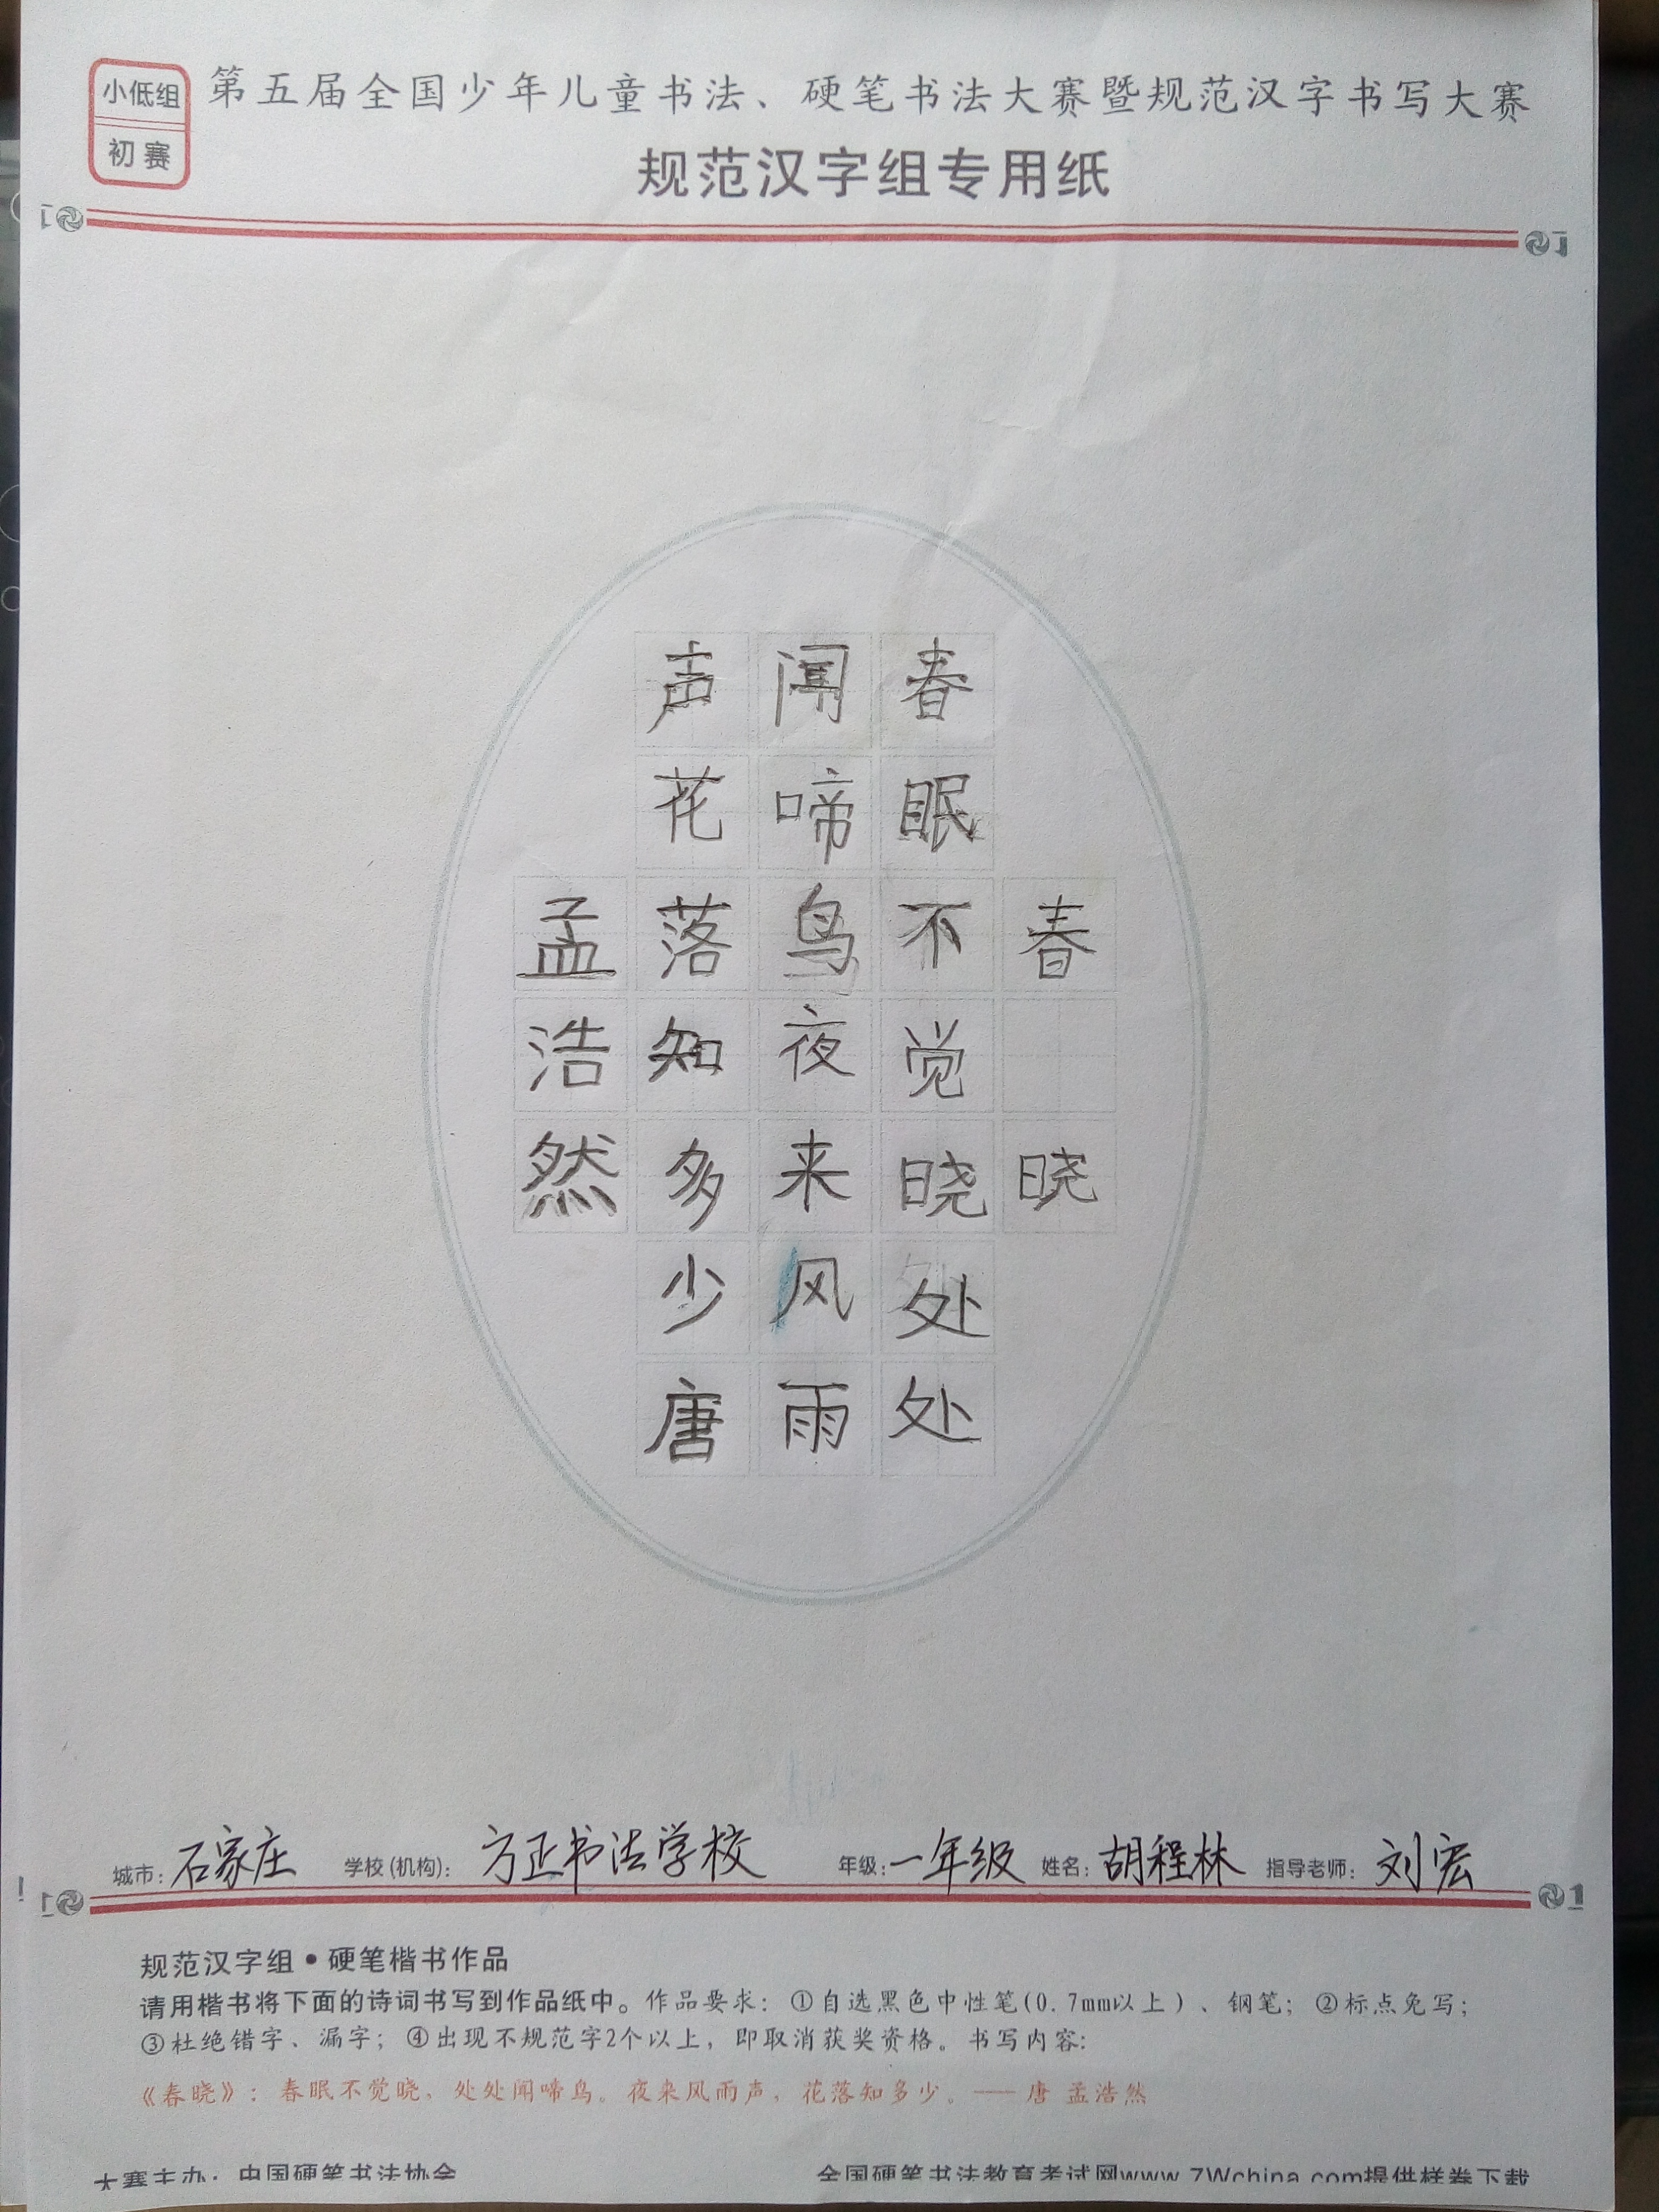 小低组
初赛
第五届全国少年儿童书法、硬笔书法大赛暨规范汉字书写大赛
规范汉字组专用纸
春晓
春眠不觉晓处处
闻啼鸟夜来风雨
声花落知多少唐
孟浩然
城市：石家庄 学校(机构)：方正书法学校 年级：一年级 姓名：胡程林 指导老师：刘宏
规范汉字组•硬笔楷书作品
请用楷书将下面的诗词书写到作品纸中。作品要求：①自选黑色中性笔(0.7mm以上)、钢笔；②标点免写；
③杜绝错字、漏字；④出现不规范字2个以上，即取消获奖资格。书写内容:
《春晓》：春眠不觉晓，处处闻啼鸟。夜来风雨声，花落知多少。——唐 孟浩然
大赛主办：中国硬笔书法协会
全国硬笔书法教育考试网www.7Wchina.com提供样卷下载